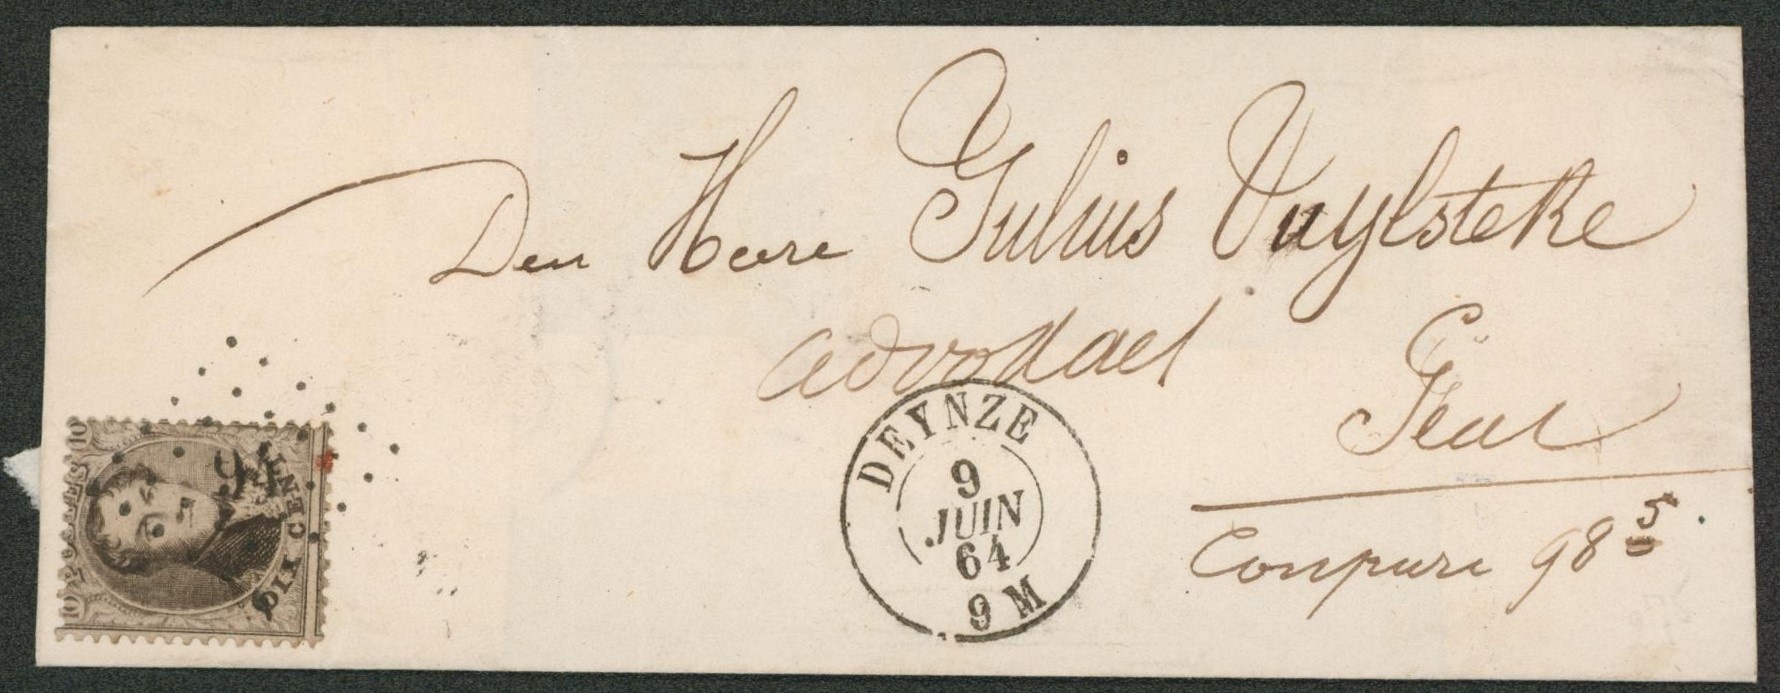 Den Heere Julius Vuylsteke
advokaet
Gent
Coupure 98 5
DEYNZE
9
JUIN
64
9 M
10 POSTES 10
DIX CENTIMES
94